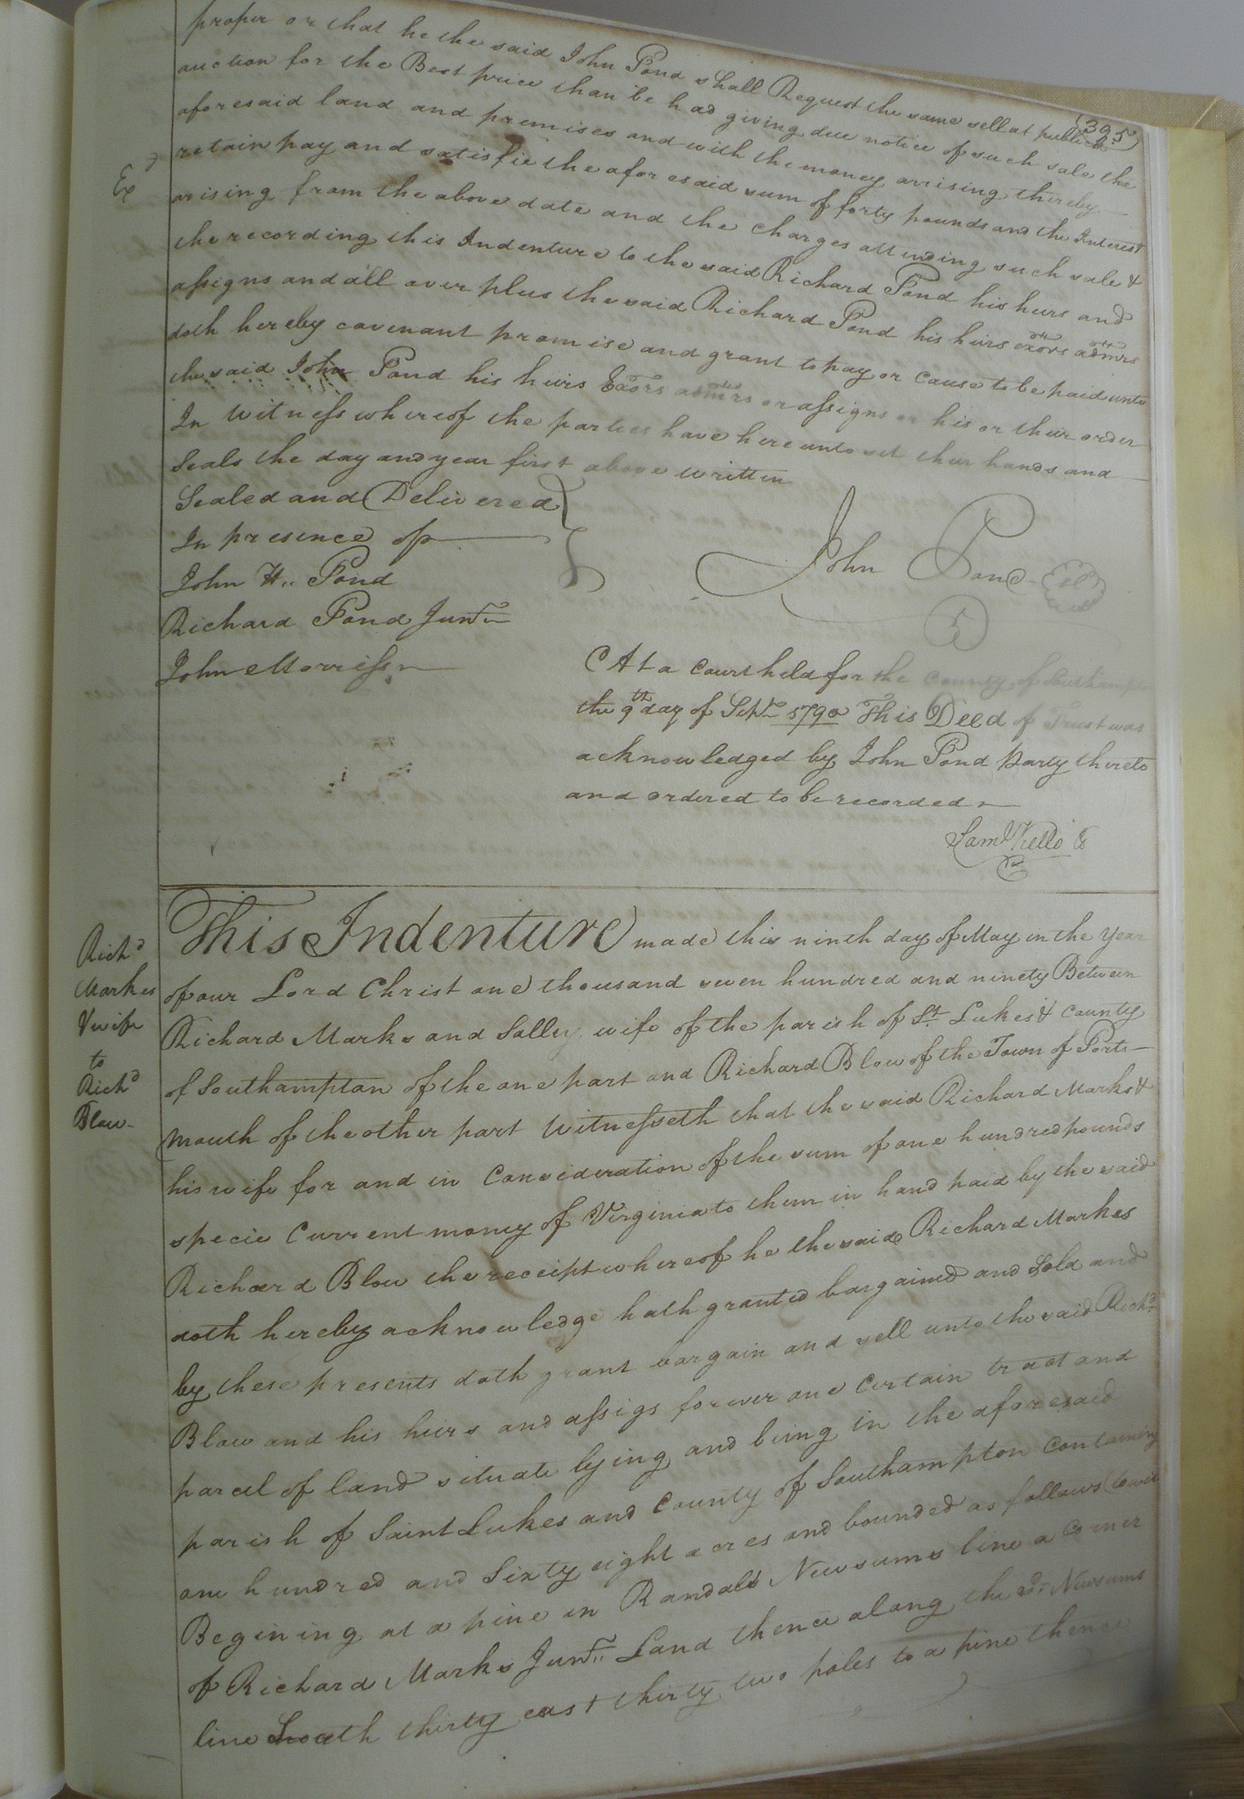 (395)
proper or that he the said John Pond shall Request the same sell at public
auction for the Best price than be had giving due notice of such sale the
aforesaid land and premises and with the money arrising thereby
Exd
retain pay and satisfie the aforesaid sum of forty pounds and the Interest
arising from the above date and the Charges attending such sale &
the recording this Indenture to the said Richard Pond his heirs and
assigns and all over plus the said Richard Pond his heirs exors admrs
doth hereby covenant promise and grant to pay or cause to be paid unto
the said John Pond his heirs Exors admrs or assigns or his or their order
In Witness whereof the parties have hereunto set their hands and
Seals the day and year first above written
Sealed and Delivered
In presence of
John H. Pond
Richard Pond Junr
John Morriss
John Pond
At a Court held for the County of Southampton
the 9th day of Septr 1790 This Deed of Trust was
acknowledged by John Pond party thereto
and ordered to be recorded
Saml Kello C
Richd
Markes
& wife
to
Richd
Blow
This Indenture made this ninth day of May in the year
of our Lord Christ one thousand seven hundred and ninety Between
Richard Marks and Salley wife of the parish of St. Lukes & County
of Southampton of the one part and Richard Blow of the Town of Ports
mouth of the other part Witnesseth that the said Richard Marks &
his wife for and in Consideration of the sum of one hundred pounds
specie Current money of Virginia to them in hand paid by the said
Richard Blow the receipt whereof he the said Richard Markes
doth hereby acknowledge hath granted bargained and Sold and
by these presents doth grant bargain and sell unto the said Richd
Blow and his heirs and assigs forever one Certain tract and
parcel of land situate lying and being in the aforesaid
parish of Saint Lukes and County of Southampton Containing
one hundred and Sixty eight acres and bounded as follows (towit
Begining at a pine in Randals Newsums line a Corner
of Richard Marks Junr. Land thence along the sd. Newsums
line South thirty east thirty two poles to a pine thence